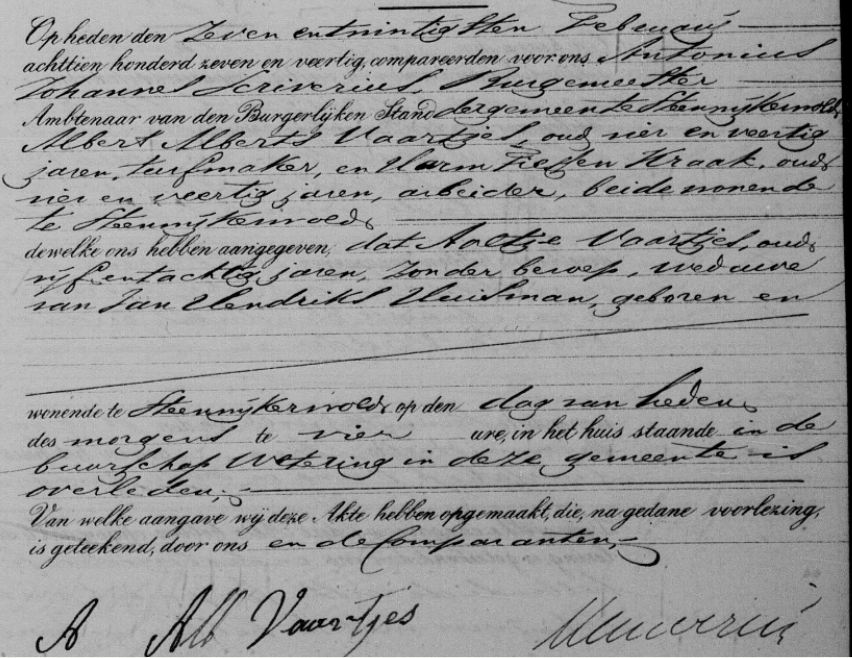 Op heden den Zeven entwintigsten Februarij
achttien honderd zeven en veertig, compareerden voor ons Antonius
Johannes Scriverius, Burgemeester
Ambtenaar van den Burgerlijken Stand der gemeente Steenwijkerwold
Albert Alberts Vaartjes, oud vier en veertig
jaren, turfmaker, en Harm Kraak, oud
vier en veertig jaren, arbeider, beide wonende
te Steenwijkerwold
dewelke ons hebben aangegeven, dat Aaltje Vaartjes, oud
vijf en tachtig jaren, zonder beroep, weduwe
van Jan Hendriks Huisman, geboren en
wonende te Steenwijkerwold op den dag van heden
des morgens te vier ure, in het huis staande in de
buurschap Wetering in deze gemeente is
overleden,
Van welke aangave wij deze Akte hebben opgemaakt, die, na gedane voorlezing,
is geteekend, door ons en de Comparanten,
A Alb Vaartjes